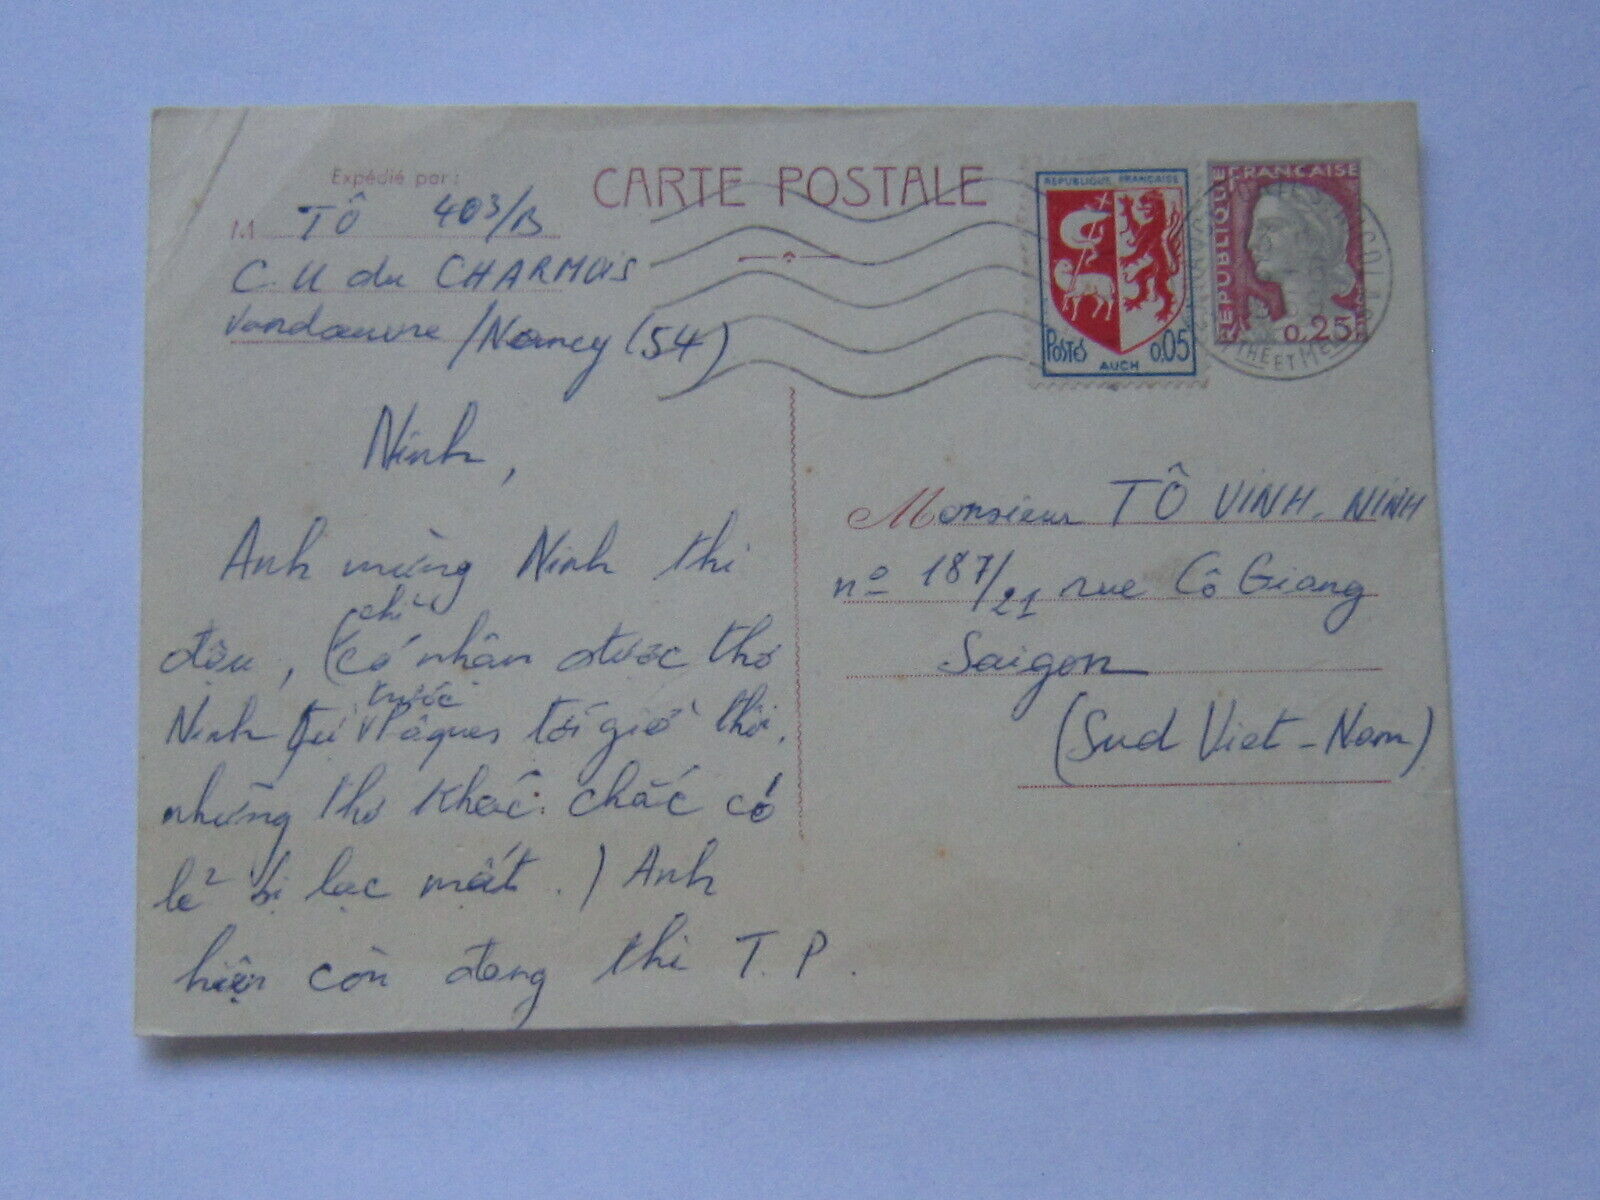 Expédié par :
CARTE POSTALE
M TÔ 403/B
C.U du CHARMOIS
Vandœuvre /Nancy (54)
REPUBLIQUE FRANÇAISE
POSTES
AUCH
0,05
REPUBLIQUE FRANCAISE
0,25
THE ET ME
Ninh,
Anh mừng Ninh thi
đậu, (chỉ có nhận được thơ
Ninh từ trước Pâques tới giờ thôi,
những thơ khác chắc có
lẽ bị lạc mất.) Anh
hiện còn đang thi T.P.
Monsieur TÔ VINH. NINH
nº 187/21 rue Cô Giang
Saigon
(Sud Viet-Nam)